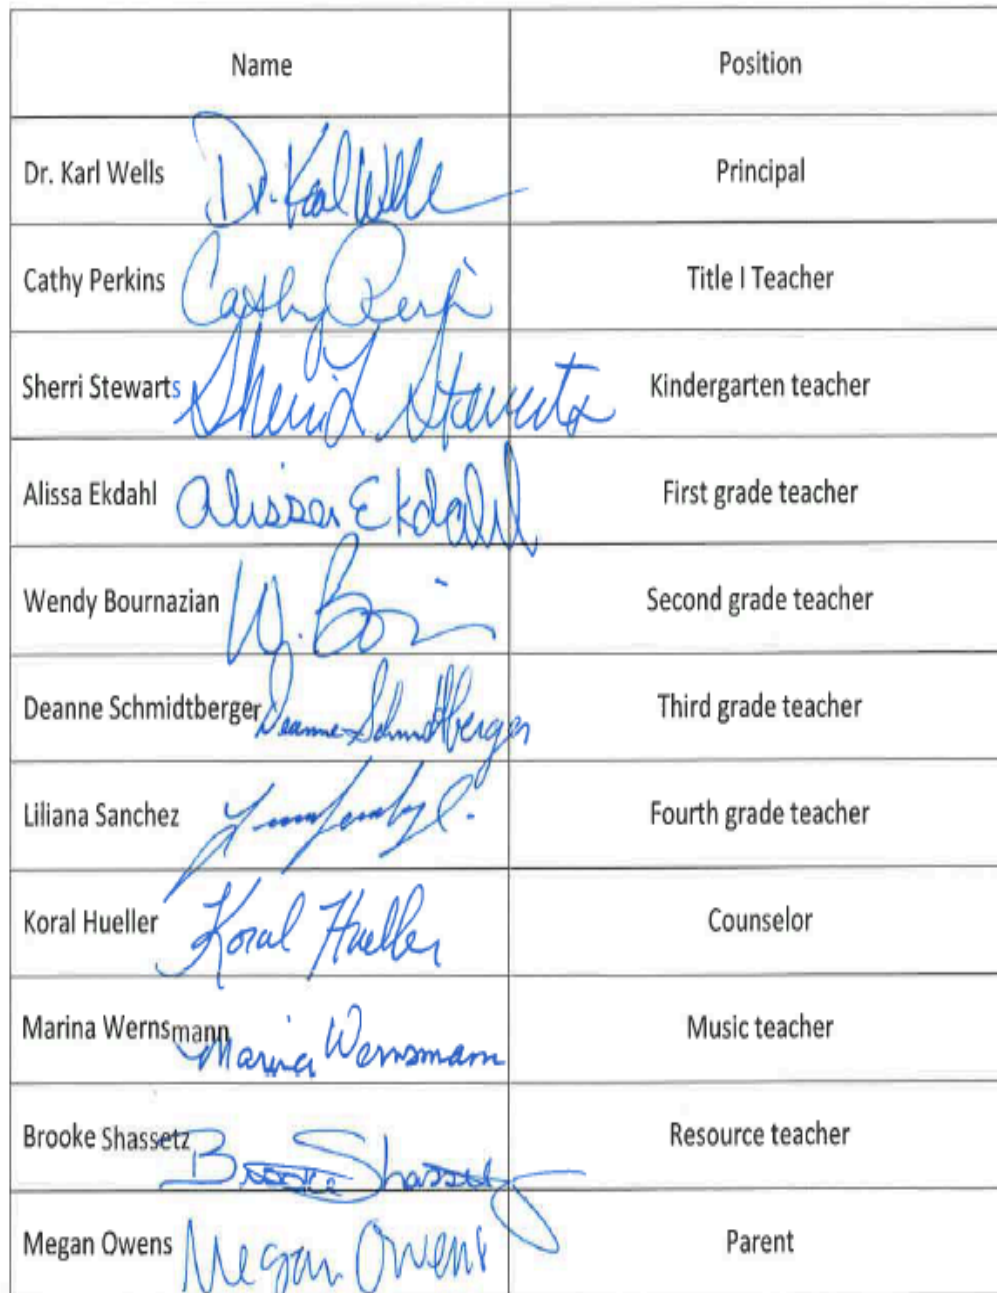 Name Position
Dr. Karl Wells Dr. Karl Wells Principal
Cathy Perkins Cathy Title I Teacher
Sherri Stewarts Sherri L. Stewarts Kindergarten teacher
Alissa Ekdahl Alissa Ekdahl First grade teacher
Wendy Bournazian W. Second grade teacher
Deanne Schmidtberger Deanne Schmidtberger Third grade teacher
Liliana Sanchez Fourth grade teacher
Koral Hueller Koral Hueller Counselor
Marina Wernsmann Marina Wernsmann Music teacher
Brooke Shassetz Brooke Shassetz Resource teacher
Megan Owens Megan Owens Parent